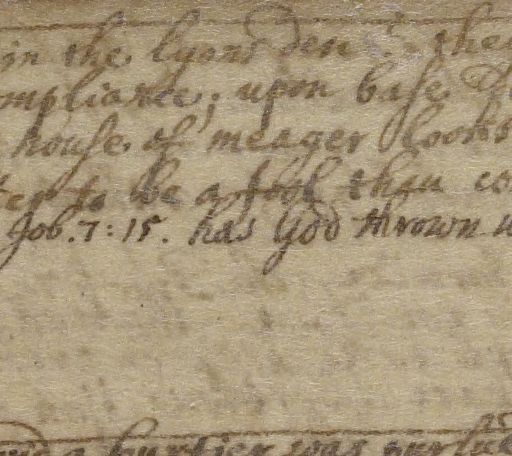 in the lyons den : the
mpliance; upon base
house of meager looks
ter to be a fool than co
Job. 7: 15. has God thrown